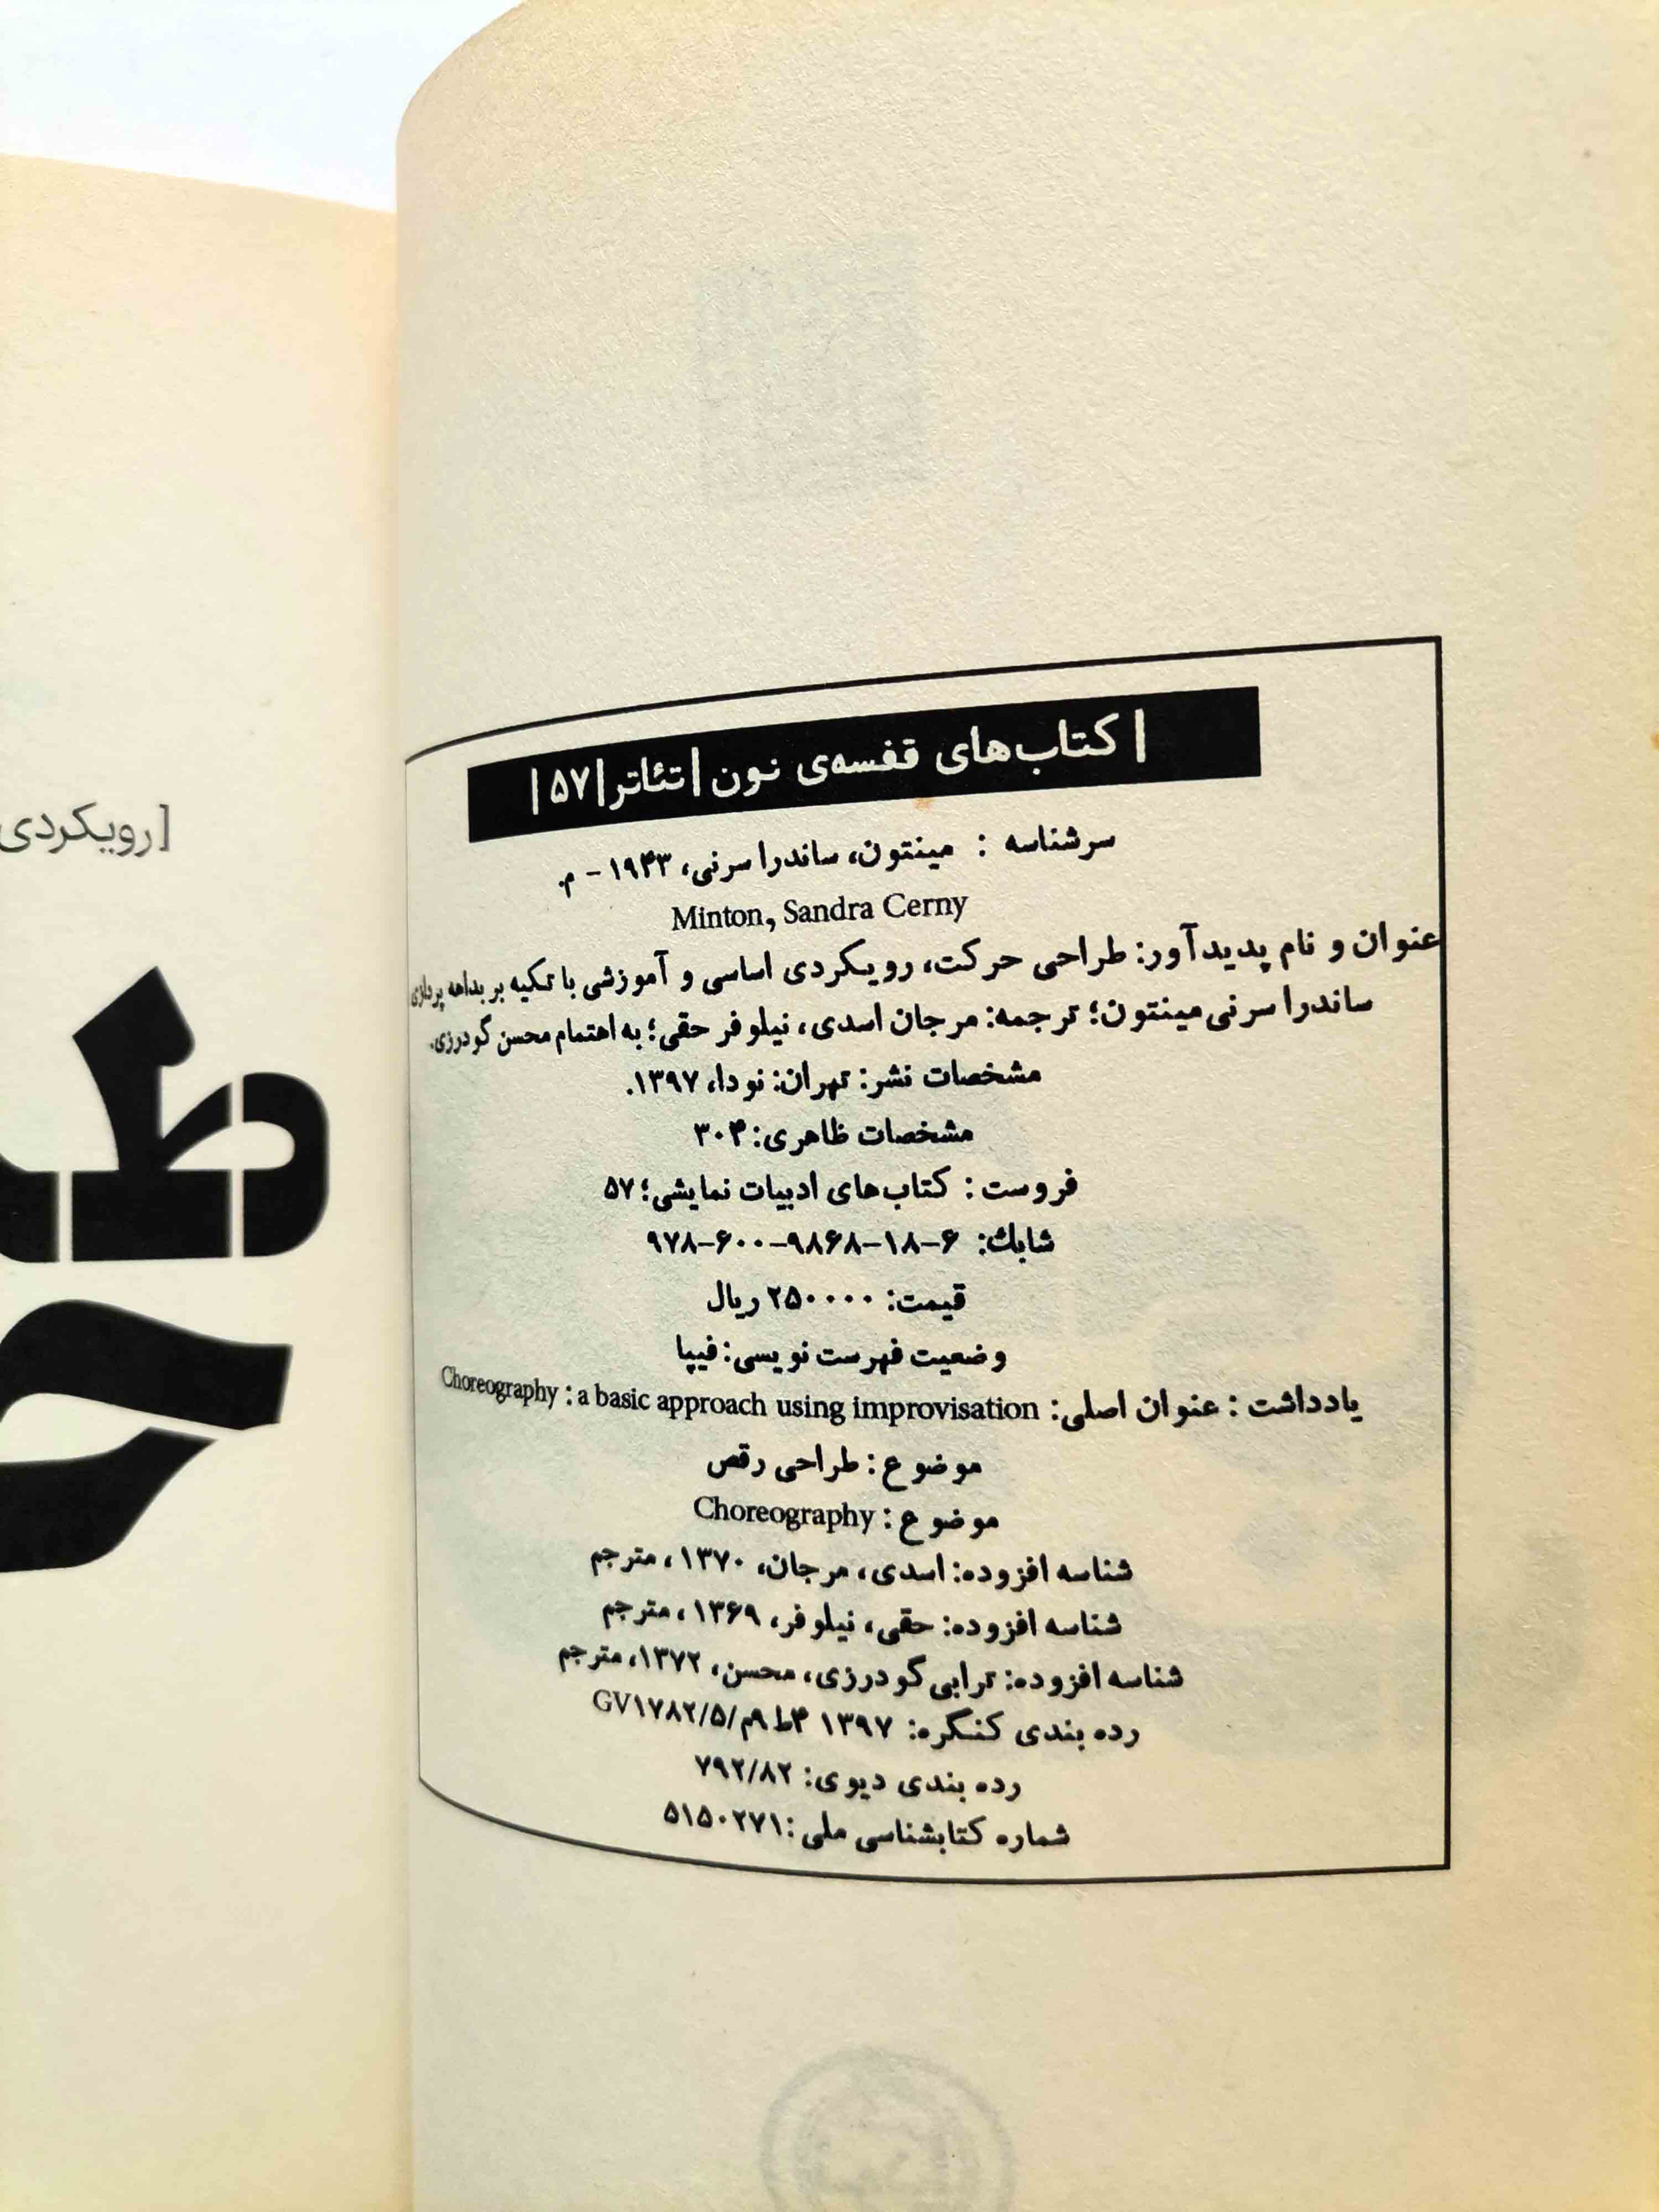 | کتاب‌های قفسه‌ی نون | تئاتر | ۵۷ |
سرشناسه : مینتون، ساندرا سرنی، ۱۹۴۳ - م.
Minton, Sandra Cerny
عنوان و نام پدیدآور: طراحی حرکت، رویکردی اساسی و آموزشی با تکیه بر بداهه پردازی
ساندرا سرنی مینتون؛ ترجمه: مرجان اسدی، نیلوفر حقی؛ به اهتمام محسن گودرزی.
مشخصات نشر: تهران: نودا، ۱۳۹۷.
مشخصات ظاهری: ۳۰۴
فروست: کتاب‌های ادبیات نمایشی؛ ۵۷
شابک: ۶-۱۸-۹۸۶۸-۶۰۰-۹۷۸
قیمت: ۲۵۰۰۰۰ ریال
وضعیت فهرست نویسی: فیپا
یادداشت : عنوان اصلی: Choreography : a basic approach using improvisation
موضوع : طراحی رقص
موضوع : Choreography
شناسه افزوده: اسدی، مرجان، ۱۳۷۰، مترجم
شناسه افزوده: حقی، نیلوفر، ۱۳۶۹، مترجم
شناسه افزوده: ترابی گودرزی، محسن، ۱۳۷۲، مترجم
رده بندی کنگره: ۱۳۹۷ ۴ط۹م/۵/GV۱۷۸۲
رده بندی دیوی: ۷۹۲/۸۲
شماره کتابشناسی ملی: ۵۱۵۰۲۷۱
[رویکردی